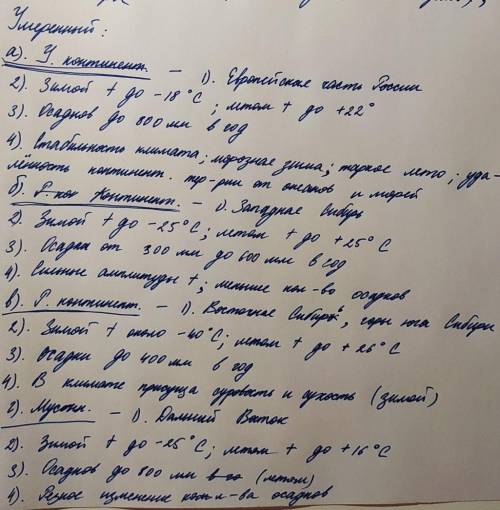 Умеренный:
а). У. континент. – 1). Европейская часть России
2). Зимой t до -18°С; летом t до +22°
3). Осадков до 800 мм в год
4). Стабильность климата; морозная зима; жаркое лето; уда-
лённость континент. тер-рии от океанов и морей
б). континент. – 1). Западная Сибирь
2). Зимой t до -25°С; летом t до +25°С
3). Осадки от 300 мм до 600 мм в год
4). Сильные амплитуды t; меньшее кол-во осадков
в). Р. континент. – 1). Восточная Сибирь, горы юга Сибири
2). Зимой t около -40°С; летом t до +26°С
3). Осадки до 400 мм в год
4). В климате присуща суровость и сухость (зимой)
г). Муссон. – 1). Дальний Восток
2). Зимой t до -25°С; летом t до +16°С
3). Осадков до 800 мм (летом)
4). Резкое изменение кол-ва осадков